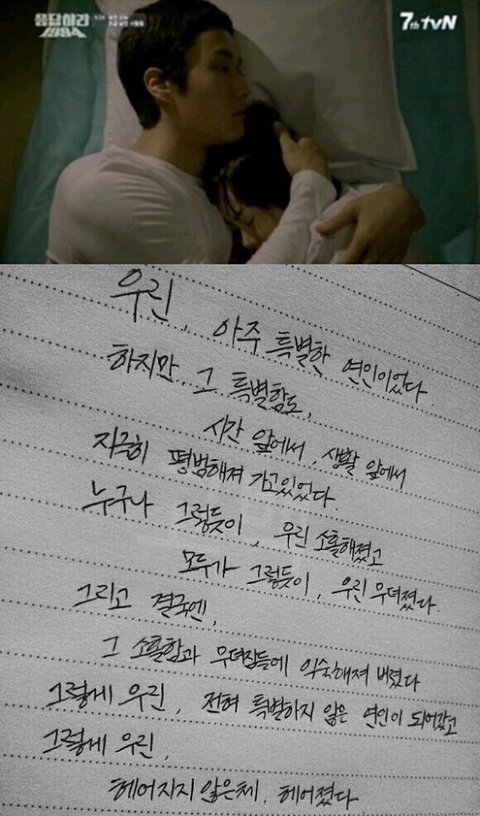 응답하라
1994
7th tvN
우린, 아주 특별한 연인이었다
하지만 그 특별함도,
시간 앞에서, 생활 앞에서
지극히 평범해져 가고있었다
누구나 그렇듯이, 우린 소홀해졌고
모두가 그렇듯이, 우린 무뎌졌다
그리고 결국엔,
그 소홀함과 무뎌짐들에 익숙해져 버렸다
그렇게 우린, 전혀 특별하지 않은 연인이 되어갔고
그렇게 우린,
헤어지지 않은체, 헤어졌다